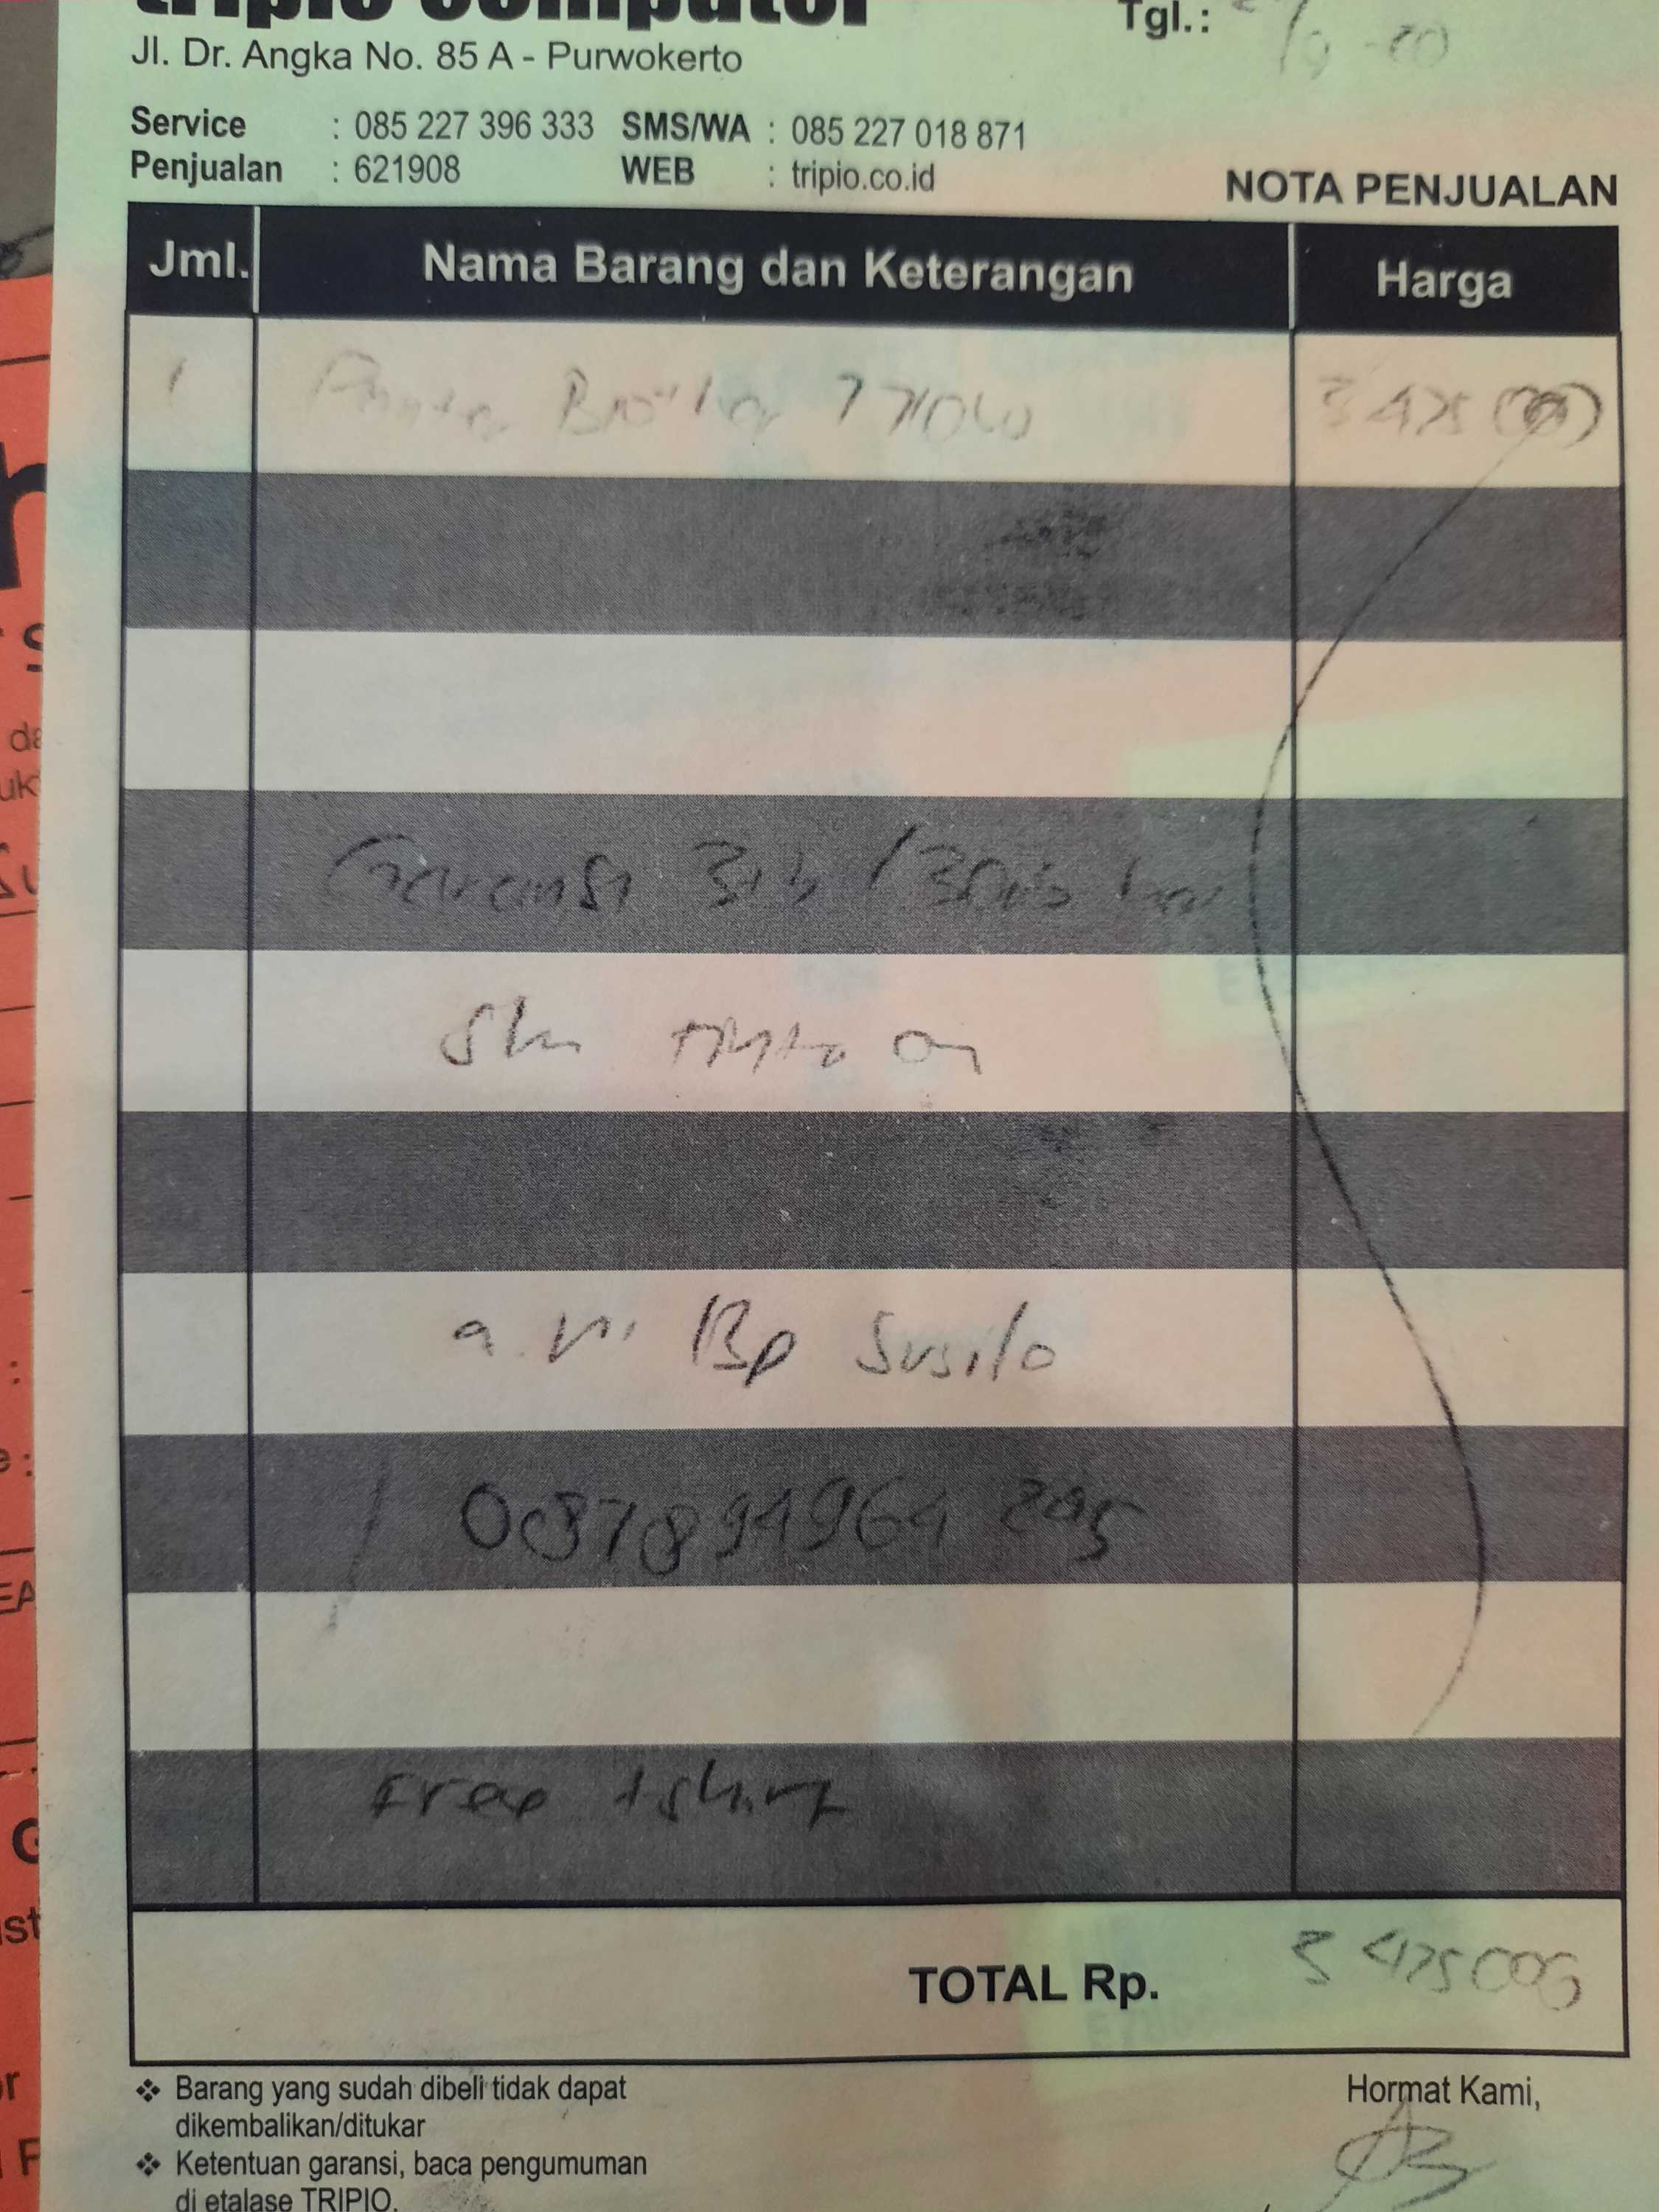 tripio computer
Tgl.: /9-20
Jl. Dr. Angka No. 85 A - Purwokerto
Service : 085 227 396 333 SMS/WA : 085 227 018 871
Penjualan : 621908 WEB : tripio.co.id
NOTA PENJUALAN
Jml. Nama Barang dan Keterangan Harga
1 Printer Brother 3 475 000
Garansi 3th
a.n. Bp Susilo
free tshirt
TOTAL Rp. 3 475 000
❖ Barang yang sudah dibeli tidak dapat
dikembalikan/ditukar
❖ Ketentuan garansi, baca pengumuman
di etalase TRIPIO.
Hormat Kami,